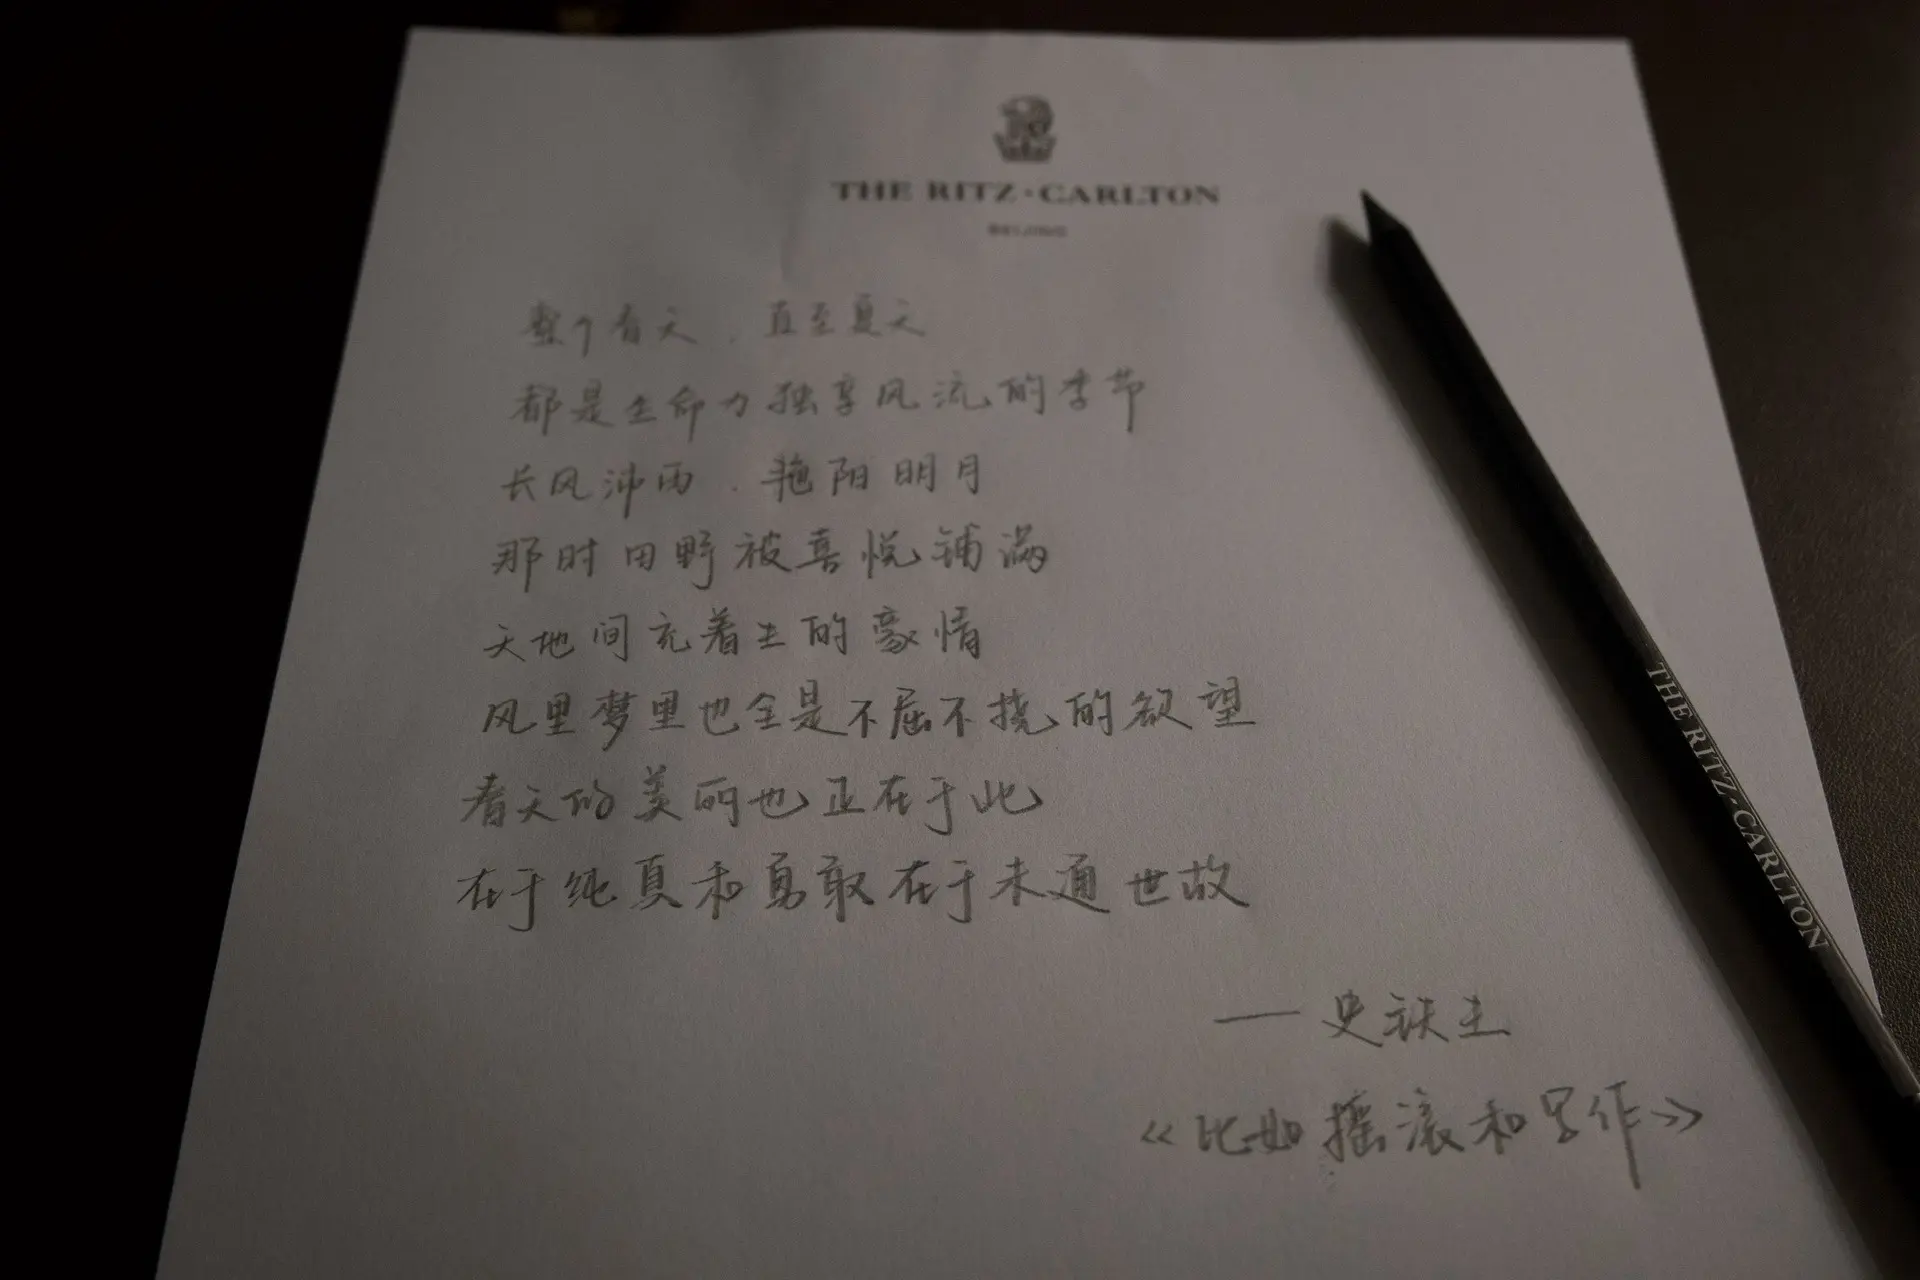 THE RITZ·CARLTON
BEIJING
整个春天，直至夏天
都是生命力独享风流的季节
长风沛雨，艳阳明月
那时田野被喜悦铺满
天地间充着生的豪情
风里梦里也全是不屈不挠的欲望
春天的美丽也正在于此
在于纯真和勇敢在于未通世故
——史铁生
《比如摇滚和写作》
THE RITZ·CARLTON